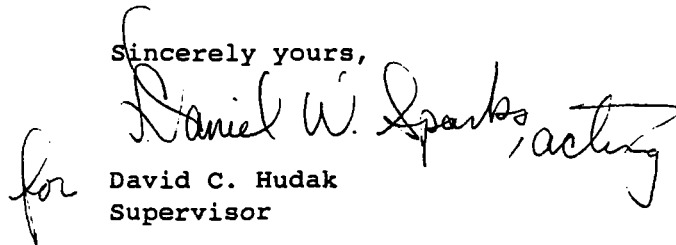 Sincerely yours,
Daniel W. Sparks, acting
for David C. Hudak
Supervisor